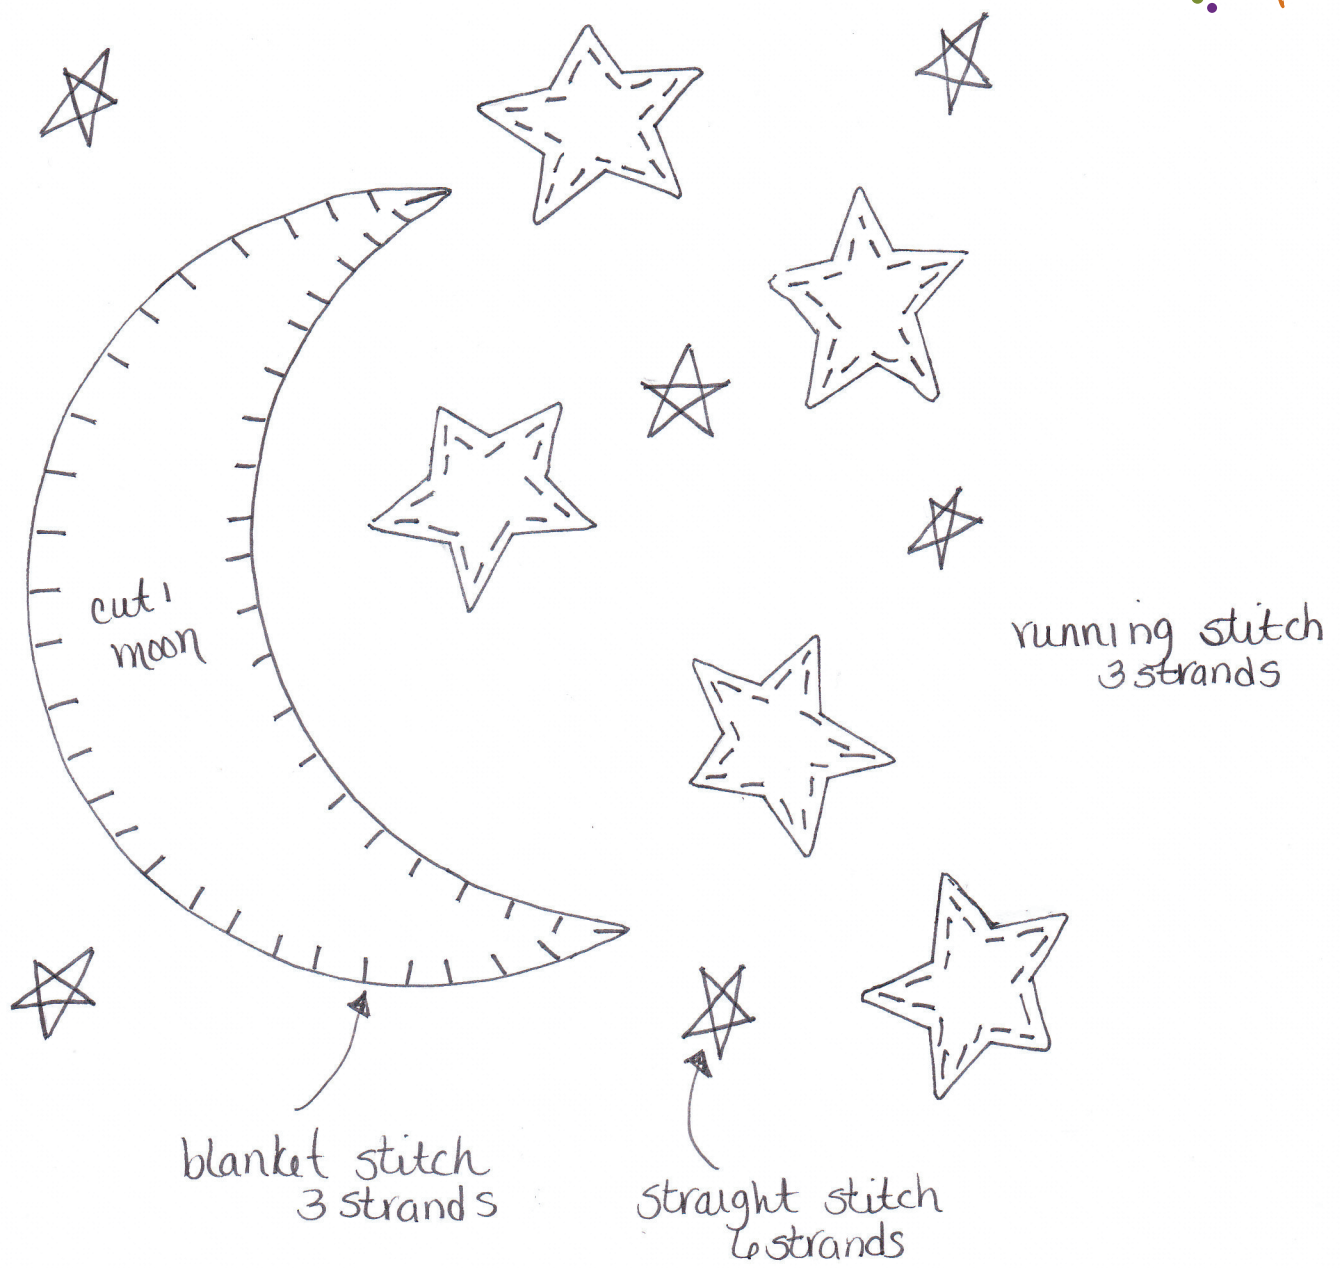 cut 1
moon
running stitch
3 strands
blanket stitch
3 strands
straight stitch
6 strands